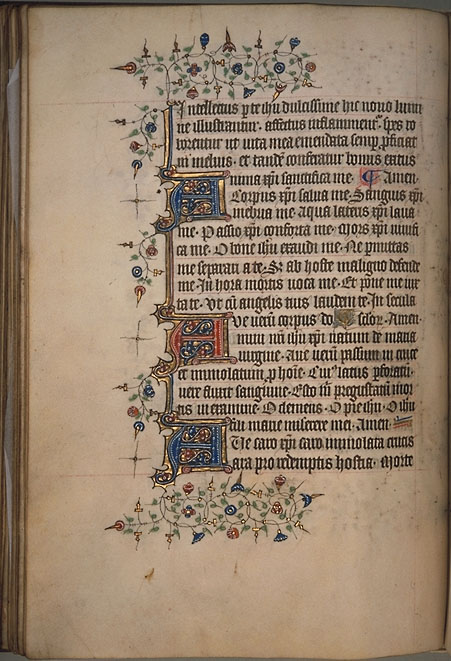 Intellectus p te ihu dulcissime hic nouo lumi
ne illustrantur. affectus inflammentur. spes ro
borentur ut uita mea emendata semp pficiat
in melius. et tande consequatur bonus exitus
Anima xpi sanctifica me. ¶ Amen.
Corpus xpi salua me. Sanguis xpi
inebria me. Aqua lateris xpi laua
me. Passio xpi conforta me. Mors xpi uiuifi
ca me. O bone ihu exaudi me. Ne pmittas
me separari a te. Sz ab hoste maligno defende
me. In hora mortis uoca me. Et pone me iux
ta te. Vt cu angelis tuis laudem te. In secula
Aue ueru corpus do sclor. Amen.
mini nri ihu xpi natum de maria
uirgine. Aue ueru passum in cruce
et immolatum p hoie. Cui' latus pforatu
uere fluxit sanguine. Esto nr pregustatu mor
tis in examine. O clemens. O pie ihu. O ihu
fili marie miserere mei. Amen
Aue caro xpi caro immolata crucis
ara pro redemptis hostia. Morte